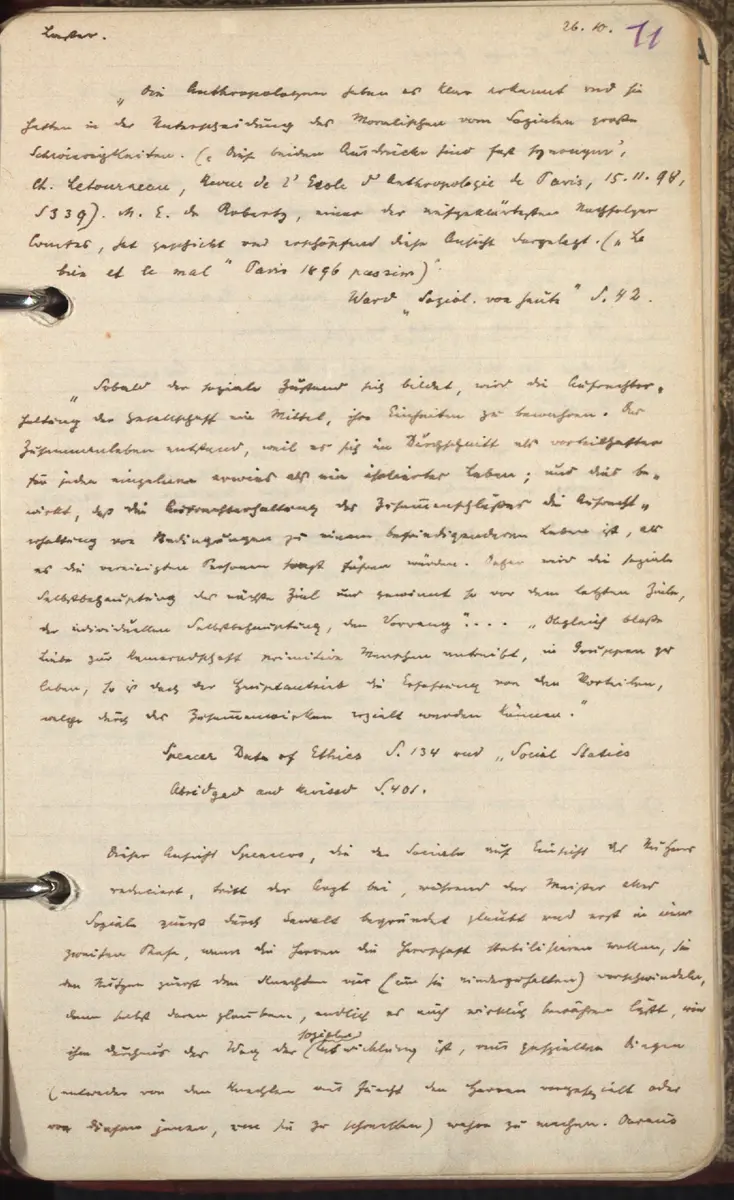 Laster. 26. 10. 11
„Die Anthropologen haben es klar erkannt und sie
hatten in der Unterscheidung des Moralischen vom Sozialen große
Schwierigkeiten. („Diese beiden Ausdrücke sind fast synonym",
Ch. Letourneau, Revue de l'Ecole d'Anthropologie de Paris, 15. 11. 98,
S 339). M. E. de Roberty, einer der aufgeklärtesten Nachfolger
Comtes, hat geschickt und erschöpfend diese Ansicht dargelegt. („Le
bien et le mal" Paris 1896 passim)".
Ward „Soziol. von heute" S. 42.
„Sobald der soziale Zustand sich bildet, wird die Aufrechter-
haltung der Gesellschaft ein Mittel, ihre Einheiten zu bewahren. Das
Zusammenleben entstand, weil es sich im Durchschnitt als vorteilhafter
für jeden einzelnen erwies als ein isoliertes Leben; und dies be-
wirkt, daß die Aufrechterhaltung des Zusammenschlußes die Aufrecht-
erhaltung von Bedingungen zu einem befriedigenderen Leben ist, als
es die vereinigten Personen sonst führen würden. Daher wird die soziale
Selbstbehauptung das nächste Ziel und gewinnt so vor dem letzten Ziele,
der individuellen Selbstbehauptung, den Vorrang".... „Obgleich bloße
Liebe zur Kameradschaft primitive Menschen antreibt, in Gruppen zu
leben, so ist doch der Hauptantrieb die Erfahrung von den Vorteilen,
welche durch das Zusammenwirken erzielt werden können."
Spencer Data of Ethics S. 134 und „Social Statics
Abridged and Revised S. 401.
Dieser Ansicht Spencers, die das Soziale auf Einsicht des Nutzens
reduciert, tritt der Arzt bei, während der Meister alles
Soziale zuerst durch Gewalt begründet glaubt und erst in einer
zweiten Phase, wenn die Herren die Herrschaft stabilisieren wollen, sie
den Nutzen zuerst den Knechten nur (um sie niederzuhalten) vorschwindeln,
dann selbst daran glauben, endlich es auch wirklich bewähren läßt, wie
ihm durchaus der Weg der soziale Entwicklung ist, aus gespielten Dingen
(entweder von den Knechten aus Furcht den Herren vorgespielt oder
von diesen jenen, um sie zu schrecken) wahre zu machen. Daraus